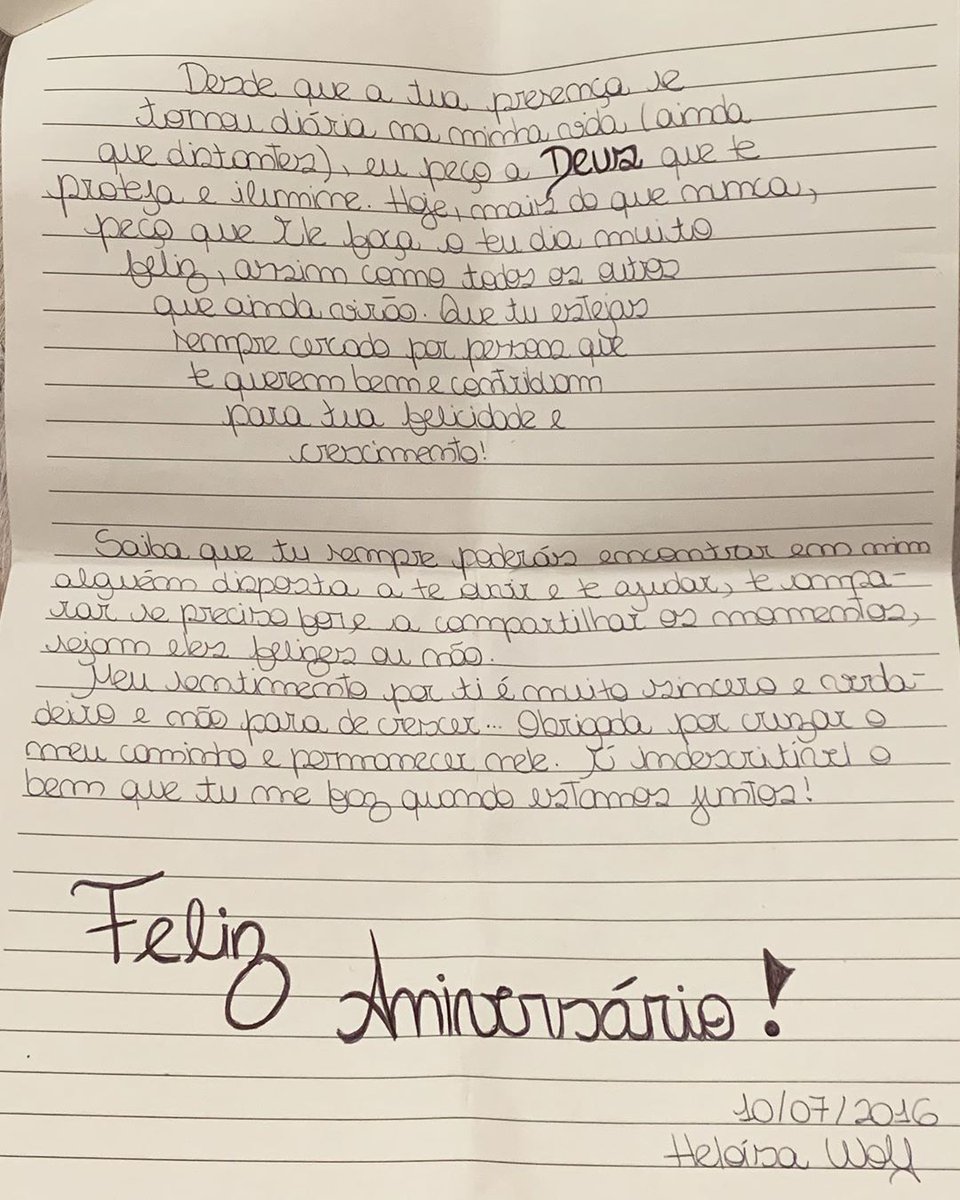 Desde que a tua presença se
tornou diária na minha vida (ainda
que distantes), eu peço a Deus que te
proteja e ilumine. Hoje, mais do que nunca,
peço que Ele faça o teu dia muito
feliz, assim como todos os outros
que ainda virão. Que tu estejas
sempre cercado por pessoas que
te querem bem e contribuam
para tua felicidade e
crescimento!
Saiba que tu sempre poderás encontrar em mim
alguém disposta a te ouvir e te ajudar, te ampa-
rar se preciso for e a compartilhar os momentos,
sejam eles felizes ou não.
Meu sentimento por ti é muito sincero e verda-
deiro e não para de crescer... Obrigada por cruzar o
meu caminho e permanecer nele. É indescritível o
bem que tu me faz quando estamos juntos!
Feliz
Aniversário!
10/07/2016
Heloísa Wolf